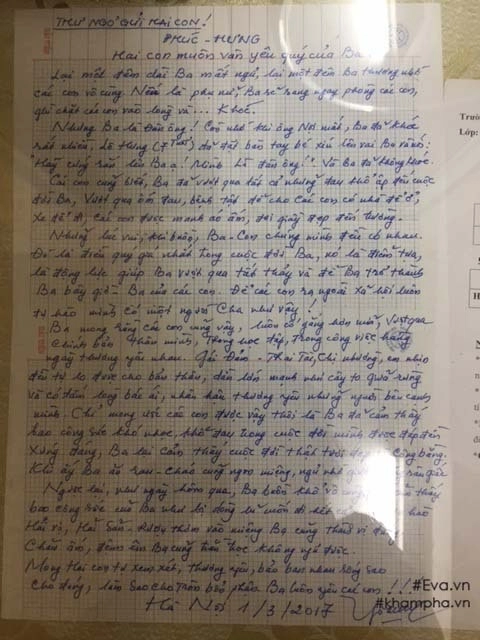 THƯ NGỎ GỬI HAI CON!
PHÚC - HƯNG
Hai con muôn vàn yêu quý của Ba
Lại một đêm dài Ba mất ngủ, lại một đêm Ba thương nhớ
các con vô cùng. Nếu là phụ nữ Ba sẽ sang ngay phòng các con,
ghì chặt các con vào lòng và ... Khóc.
Nhưng Ba là đàn ông! Còn nhớ khi ông Nội mất, Ba đã khóc
rất nhiều, lúc Hưng (7 tuổi) đã đặt bàn tay bé xíu lên vai Ba và nói:
"Hãy cứng rắn lên Ba ạ! Mình là đàn ông!" Và Ba đã không khóc.
Các con cũng biết, Ba đã vượt qua tất cả những đau khổ ập đến cuộc
đời Ba, vượt qua ốm đau, bệnh tật để cho các con có nhà để ở,
xe để đi, các con được manh áo ấm, đôi giầy đẹp đến trường.
Nhưng lúc vui, khi buồn, Ba - Con chúng mình đều có nhau.
Đó là điều quý giá nhất trong cuộc đời Ba, nó là điểm tựa,
là động lực giúp Ba vượt qua tất thảy và để Ba trở thành
Ba bây giờ - Ba của các con. Để các con ra ngoài xã hội luôn
tự hào mình có một người Cha như vậy!
Ba mong rằng các con cũng vậy, luôn cố gắng hơn nữa, vượt qua
chính bản thân mình, trong học tập, trong công việc hàng
ngày thương yêu nhau.
đến tự lo được cho bản thân, dần lớn mạnh như cây to quả rừng
và có tấm lòng bác ái, nhân hậu thương yêu những người bên cạnh
mình. Chỉ mong ước các con được vậy thôi là Ba đã cảm thấy
bao công sức khó nhọc, khổ đau trong cuộc đời mình được đáp đền
xứng đáng, Ba lại cảm thấy cuộc đời thật tươi đẹp công bằng.
Khi ấy Ba ăn rau - cháo cũng ngon miệng, ngủ nhà
Ngược lại, như ngày hôm qua, Ba buồn khổ vô cùng thấy
bao công sức của Ba như bị dòng lũ muốn đi hết
Hải vị, Hải Sản - Rượu thơm vào miệng Ba cũng thấy vị đắng
Chăn ấm, đệm êm Ba cũng trằn trọc không ngủ được.
Mong Hai con tự xem xét, thương yêu, bảo ban nhau sống sao
cho đúng, làm sao cho tròn bổn phận. Ba luôn yêu các con!!!
Hà Nội 1/3/2017
#Eva.vn
#khampha.vn
Trườ
Lớp: